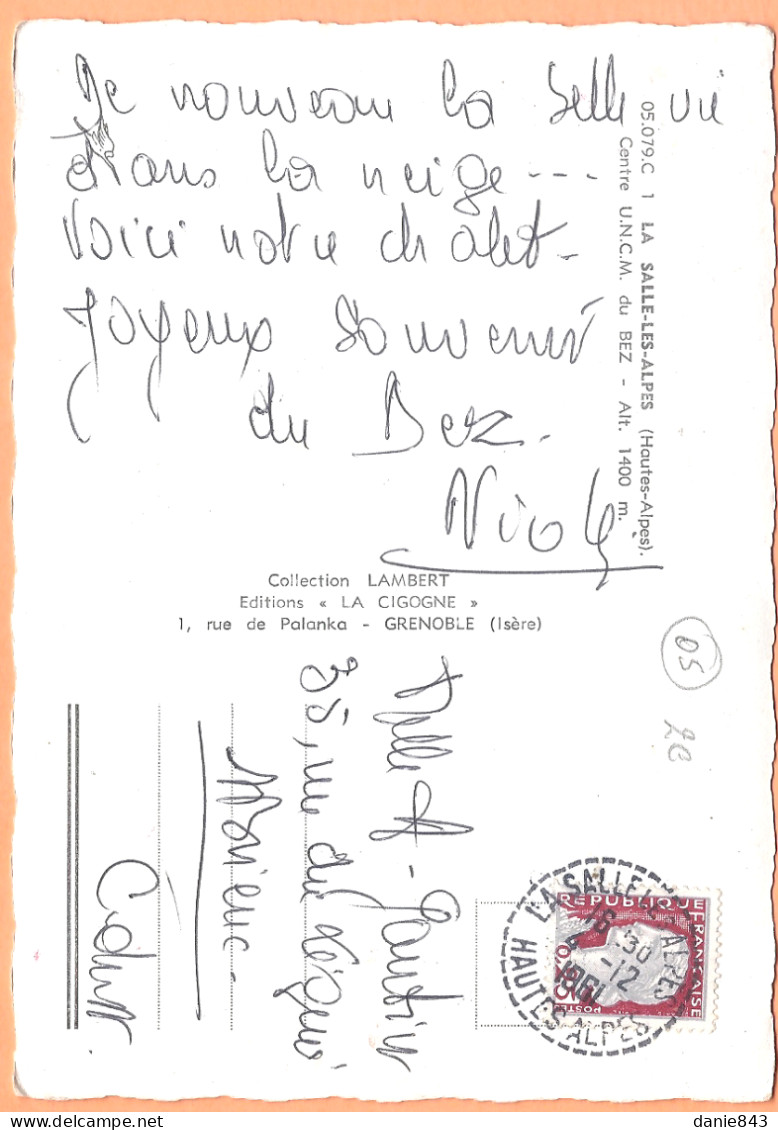 De nouveau la belle vie
dans la neige ---
Voici notre chalet -
Joyeux souvenir
du Bez -
Nicole
05.079.C 1 LA SALLE-LES-ALPES (Hautes-Alpes).
Centre U.N.C.M. du BEZ - Alt. 1400 m.
Collection LAMBERT
Editions « LA CIGOGNE »
1, rue de Palanka - GRENOBLE (Isère)
05
2€
Melle A - Gautier
35, rue du
REPUBLIQUE FRANÇAISE
0,25
POSTES
LA SALLE LES ALPES
16-30
-12
1961
HAUTES ALPES
danie843